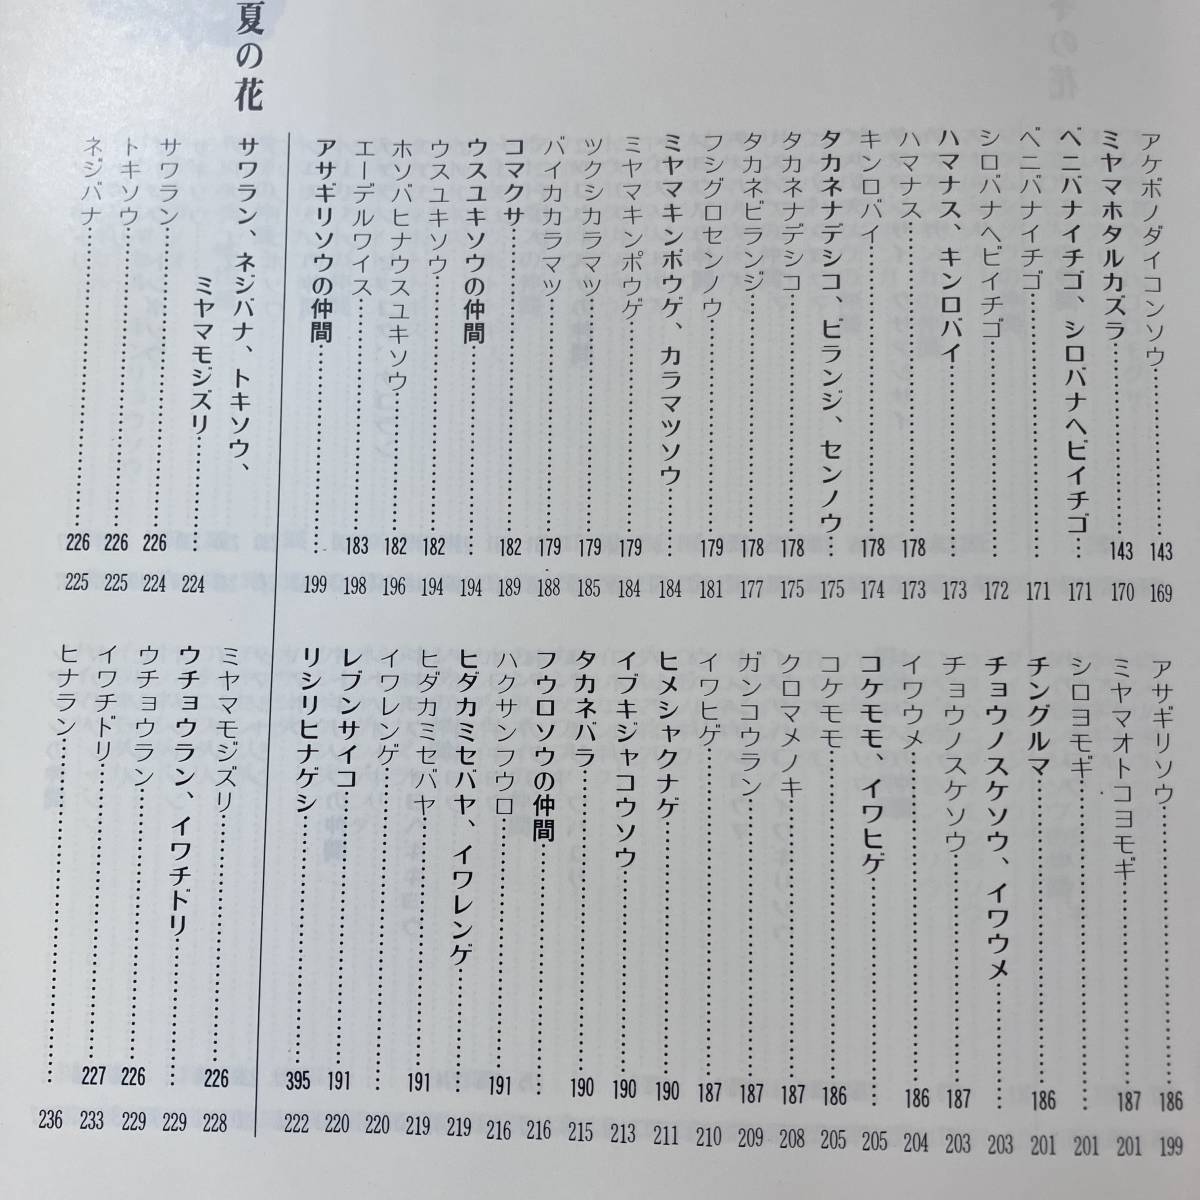 アケボノダイコンソウ……143 169
ミヤマホタルカズラ……143 170
ベニバナイチゴ、シロバナヘビイチゴ……171
ベニバナイチゴ……171
シロバナヘビイチゴ……172
ハマナス、キンロバイ……173
ハマナス……178 173
キンロバイ……178 174
タカネナデシコ、ビランジ、センノウ……175
タカネナデシコ……178 175
タカネビランジ……178 177
フシグロセンノウ……179 181
ミヤマキンポウゲ、カラマツソウ……184
ミヤマキンポウゲ……179 184
ツクシカラマツ……179 185
バイカカラマツ……179 188
コマクサ……182 189
ウスユキソウの仲間……194
ウスユキソウ……182 194
ホソバヒナウスユキソウ……182 196
エーデルワイス……183 198
アサギリソウの仲間……199
アサギリソウ……186 199
ミヤマオトコヨモギ……187 201
シロヨモギ……201
チングルマ……186 201
チョウノスケソウ、イワウメ……203
チョウノスケソウ……187 203
イワウメ……186 204
コケモモ、イワヒゲ……205
コケモモ……186 205
クロマメノキ……187 208
ガンコウラン……187 209
イワヒゲ……187 210
ヒメシャクナゲ……190 211
イブキジャコウソウ……190 213
タカネバラ……190 215
フウロソウの仲間……216
ハクサンフウロ……191 216
ヒダカミセバヤ、イワレンゲ……219
ヒダカミセバヤ……191 219
イワレンゲ……220
レブンサイコ……191 220
リシリヒナゲシ……395 222
夏の花
サワラン、ネジバナ、トキソウ、
ミヤマモジズリ……224
サワラン……226 224
トキソウ……226 225
ネジバナ……226 225
ミヤマモジズリ……226 228
ウチョウラン、イワチドリ……229
ウチョウラン……226 229
イワチドリ……227 233
ヒナラン……236